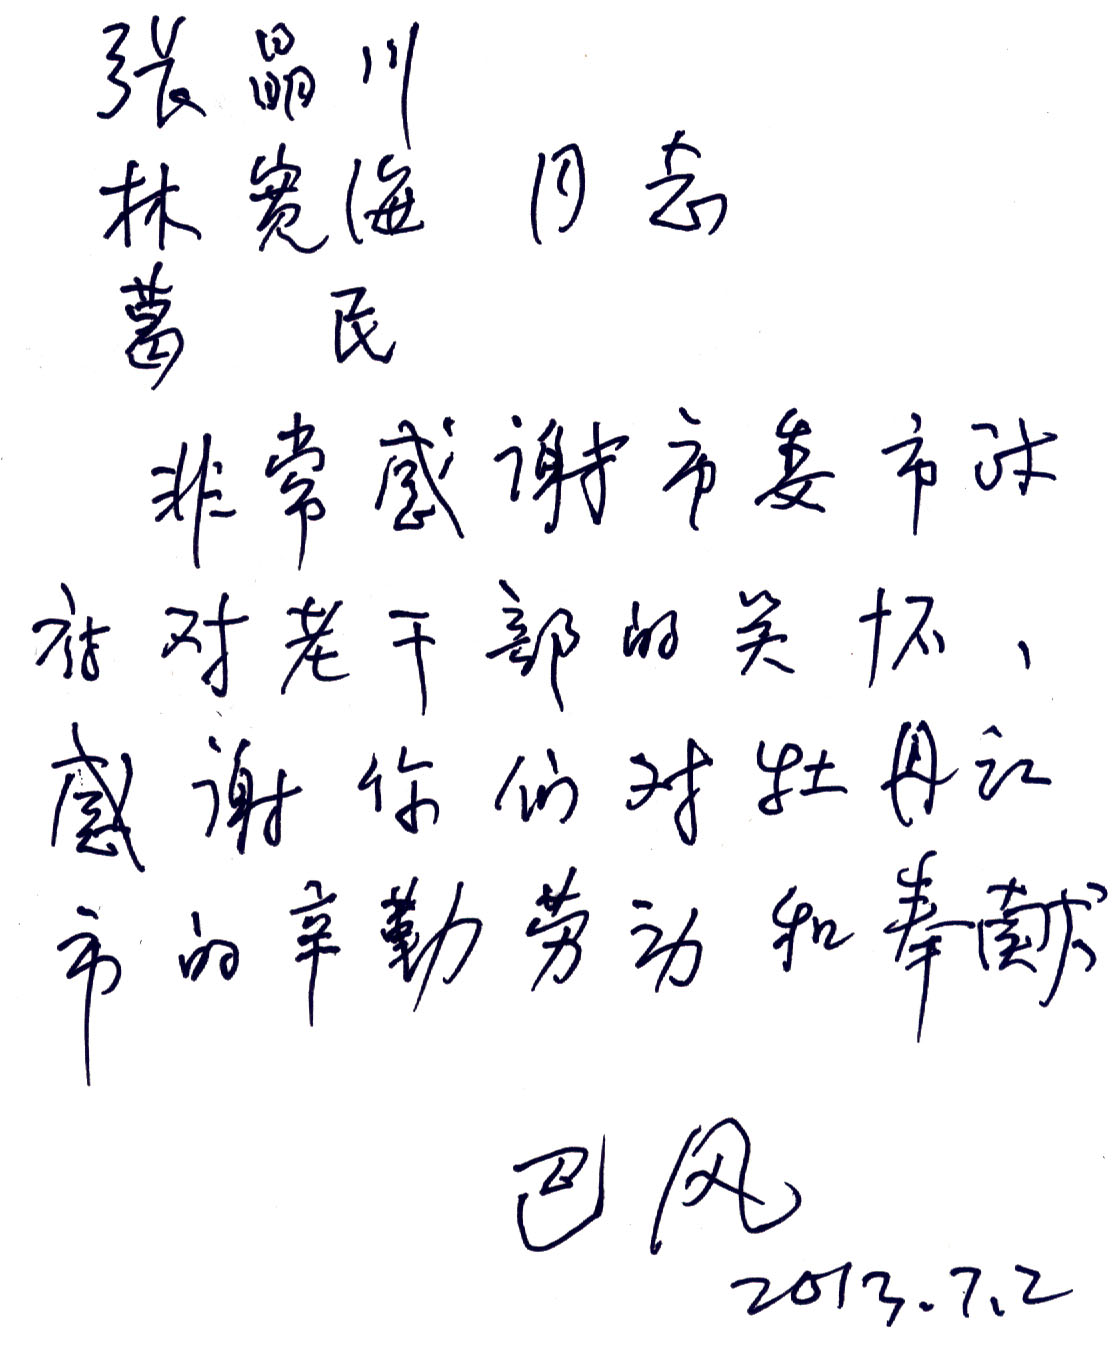 張晶川
林寬海 同志
葛 民
非常感谢市委市政
府对老干部的关怀、
感谢你们对牡丹江
市的辛勤劳动和奉献
巴风
2013.7.2